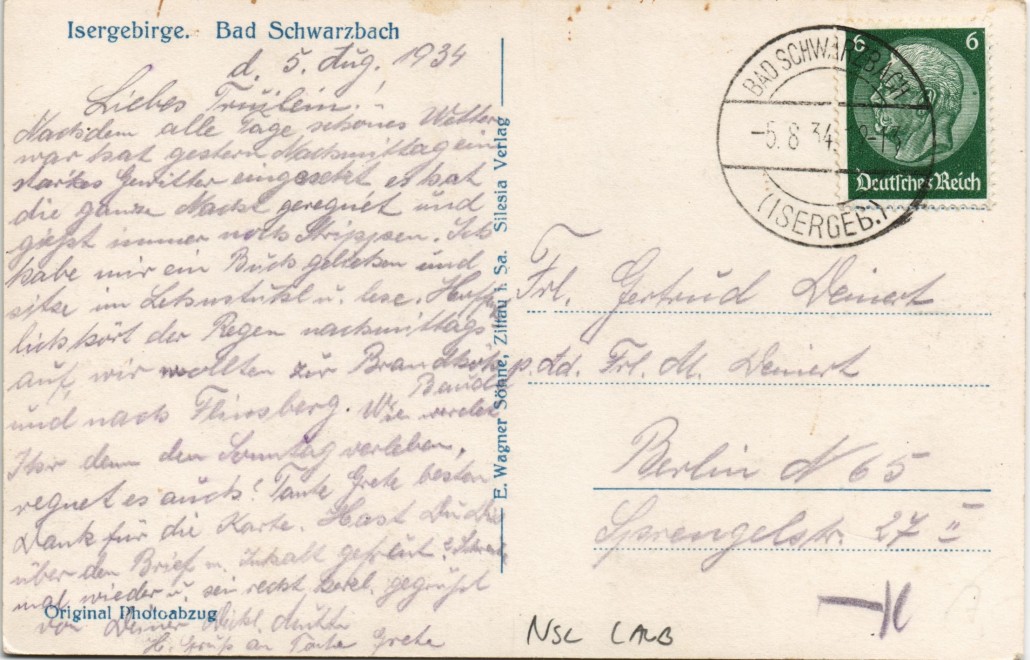 Isergebirge. Bad Schwarzbach
d. 5. Aug. 1934
Liebes Trudlein!
Nachdem alle Tage schönes Wetter
war hat gestern Nachmittag ein
starkes Gewitter eingesetzt es hat
die ganze Nacht geregnet und
gießt immer noch Strippen. Ich
habe mir ein Buch geliehen und
sitze im Lehnstuhl u. lese. Hoffent
lich hört der Regen nachmittags
auf, wir wollten zur
Baude
und nach Flinsberg. Wie werdet
Ihr denn den Sonntag verleben,
regnet es auch? Tante Grete besten
Dank für die Karte. Hast Du Dich
über den Brief m. Inhalt gefreut? Schreib
mal wieder u. sei recht herzl. gegrüßt
von Deiner Mutti
H. Gruß an Tante Grete
Original Photoabzug
E. Wagner Söhne, Zittau i. Sa. Silesia Verlag
BAD SCHWARZBACH
-5.8.34
(ISERGEB.)
6 6
Deutsches Reich
Frl. Gertrud Deinert
p. Ad. Frl. M. Deinert
Berlin N 65
Sprengelstr. 27 II
NSC